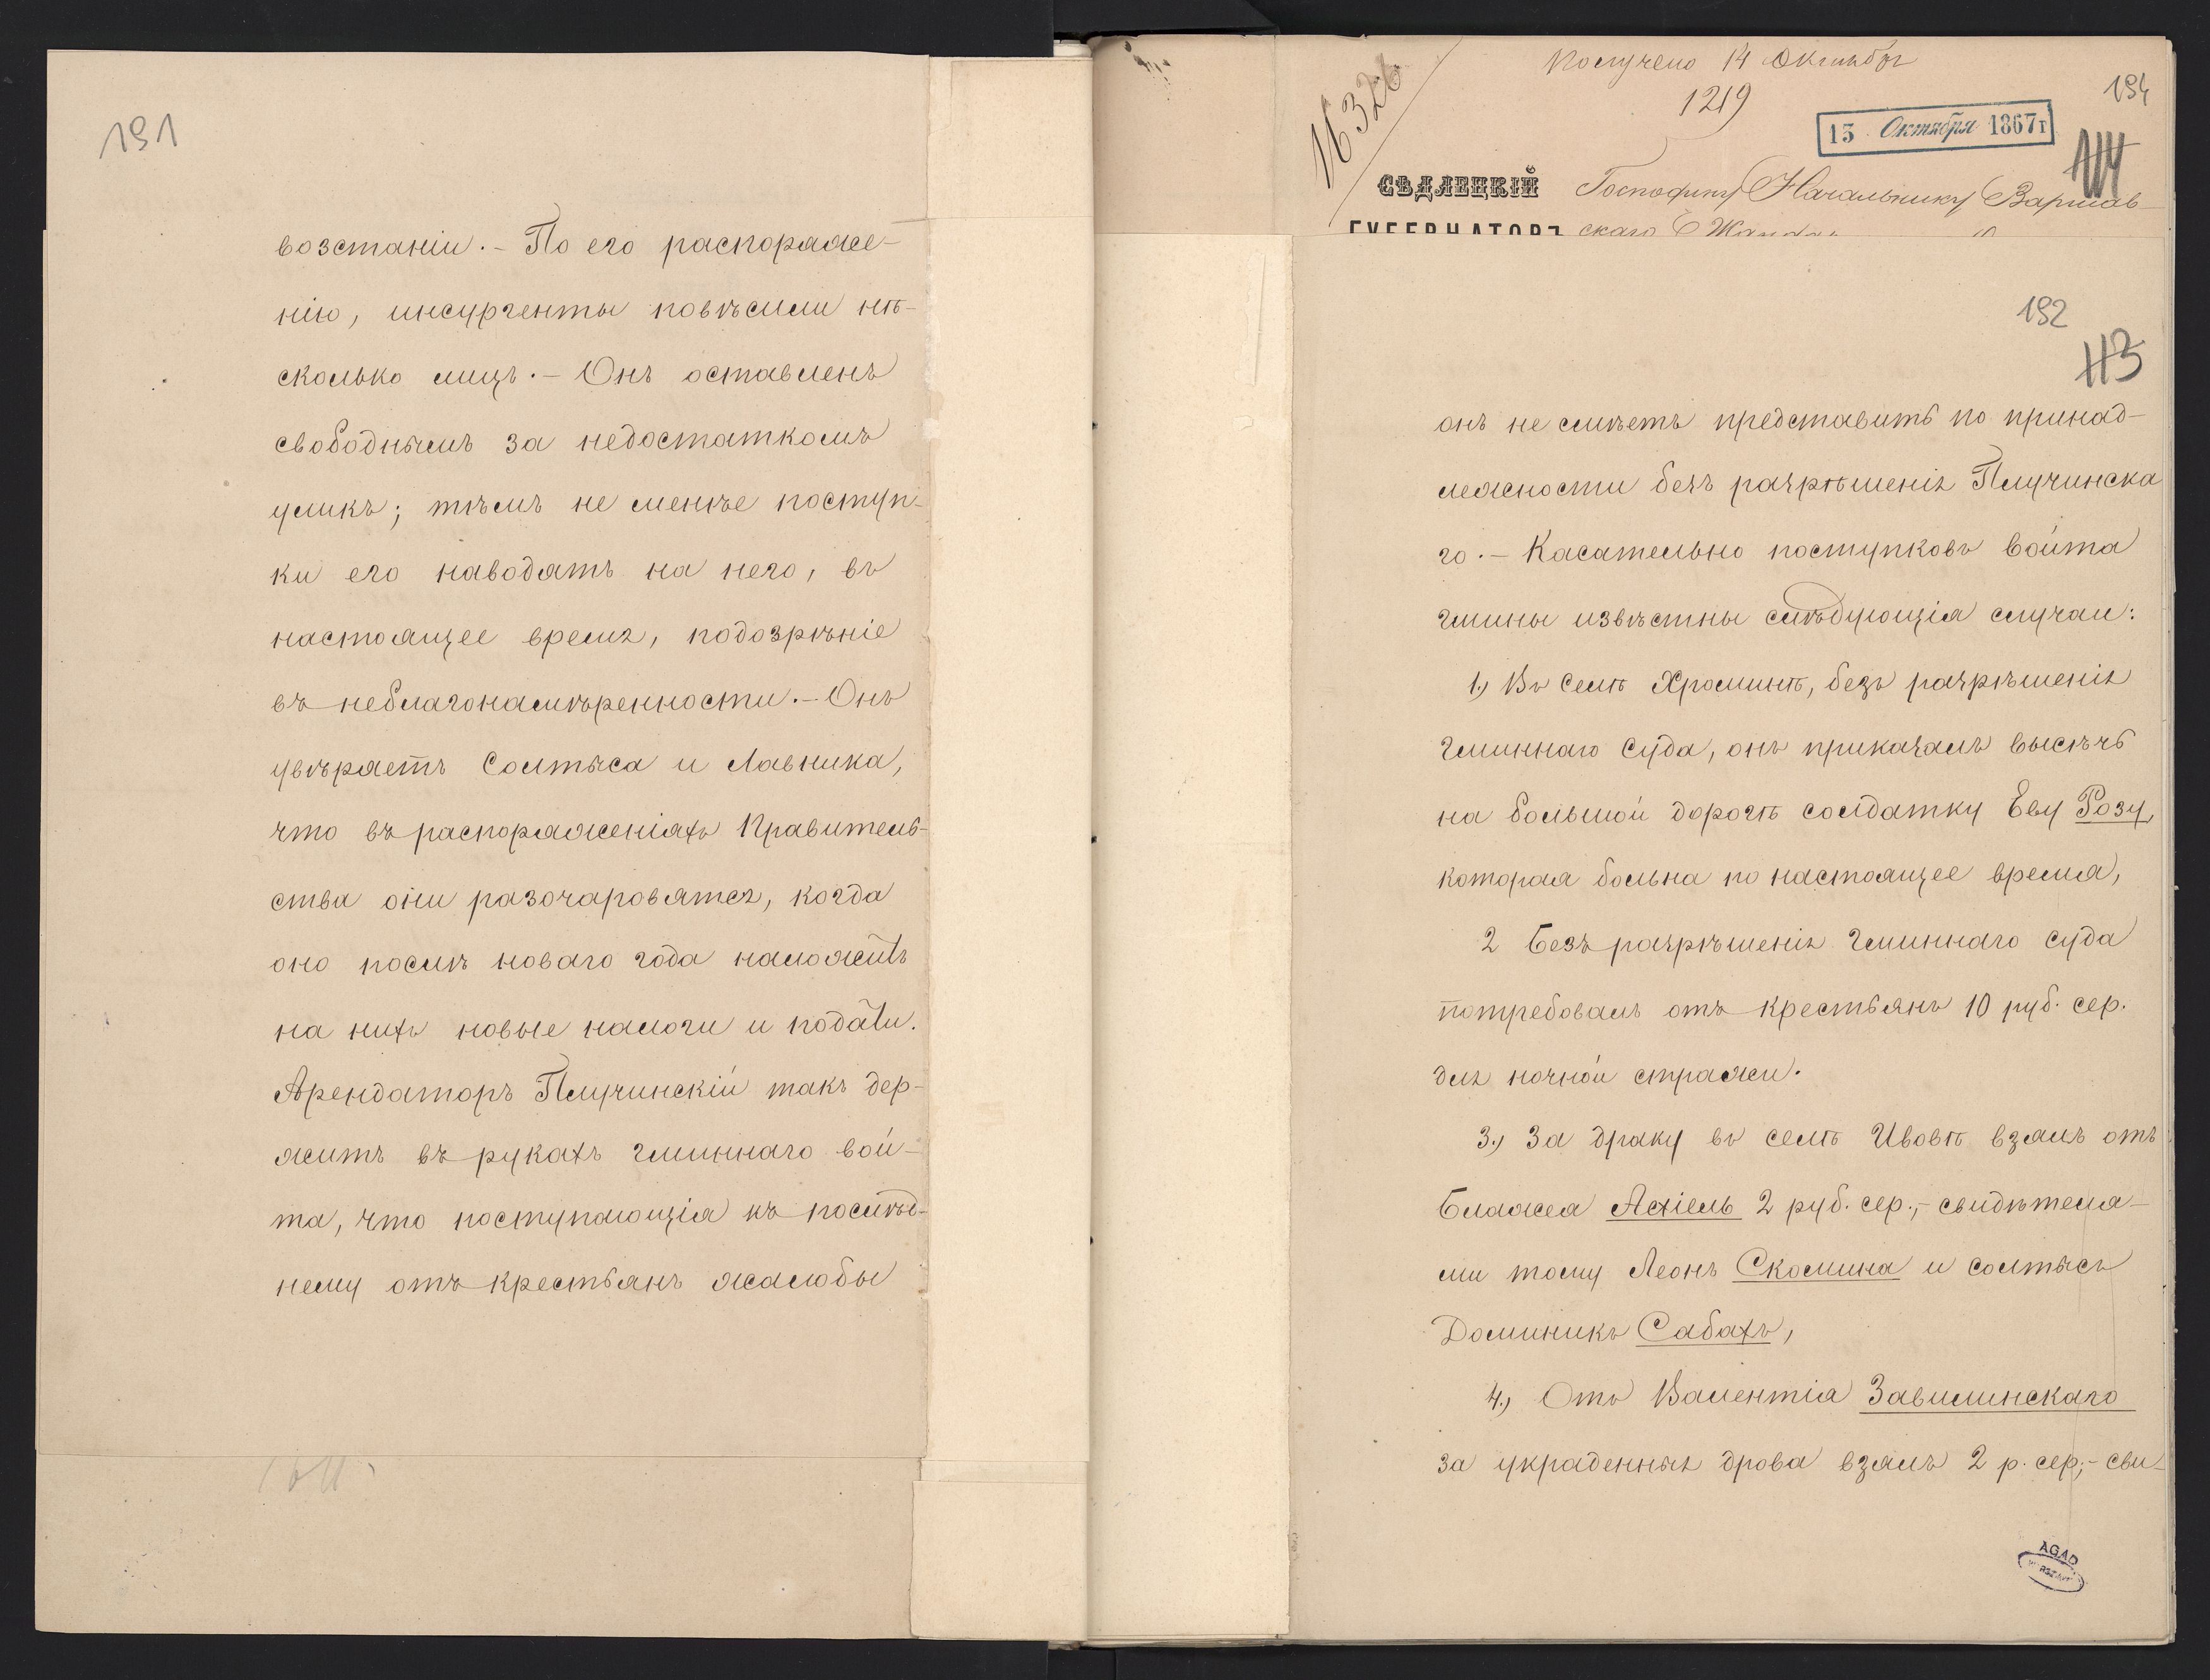 191
возстаніи. - По его распоряже-
нію, инсургенты повѣсили нѣ-
сколько лицъ. - Онъ оставленъ
свободнымъ за недостаткомъ
уликъ; тѣмъ не менѣе поступ-
ки его наводятъ на него, въ
настоящее время, подозрѣніе
въ неблагонамѣренности. - Онъ
увѣряетъ Солтыса и Лавника,
что въ распоряженіяхъ Правитель-
ства они разочаровятся, когда
оно послѣ новаго года наложитъ
на нихъ новые налоги и подати.
Арендаторъ Плучинскій такъ дер-
житъ въ рукахъ гминнаго вой-
та, что поступающія къ послѣд-
нему отъ крестьянъ жалобы
Получено 14 Октября
1219
16326
194
13 Октября 1867 г
114
СѢДЛЕЦКІЙ Господину Начальнику Варшав-
ГУБЕРНАТОРЪ скаго
192
113
онъ не смѣетъ представить по принад-
лежности безъ разрѣшенія Плучинска
го. - Касательно поступковъ войта
гмины извѣстны слѣдующія случаи:
1.) Въ селѣ Хроминѣ, безъ разрѣшенія
гминнаго суда, онъ приказалъ высѣчь
на большой дорогѣ солдатку Еву Розу,
которая больна по настоящее время,
2 Безъ разрѣшенія гминнаго суда
потребовалъ отъ крестьянъ 10 руб. сер.
для ночной стражи.
3.) За драку въ селѣ Ивовѣ взялъ отъ
Блажея Ахіель 2 руб. сер.,- свидѣтеля-
ми тому Леонъ Скомина и солтысъ
Доминикъ Сабахъ,
4.) Отъ Валентія Завилинскаго
за украденныя дрова взялъ 2 р. сер;- сви-
AGAD